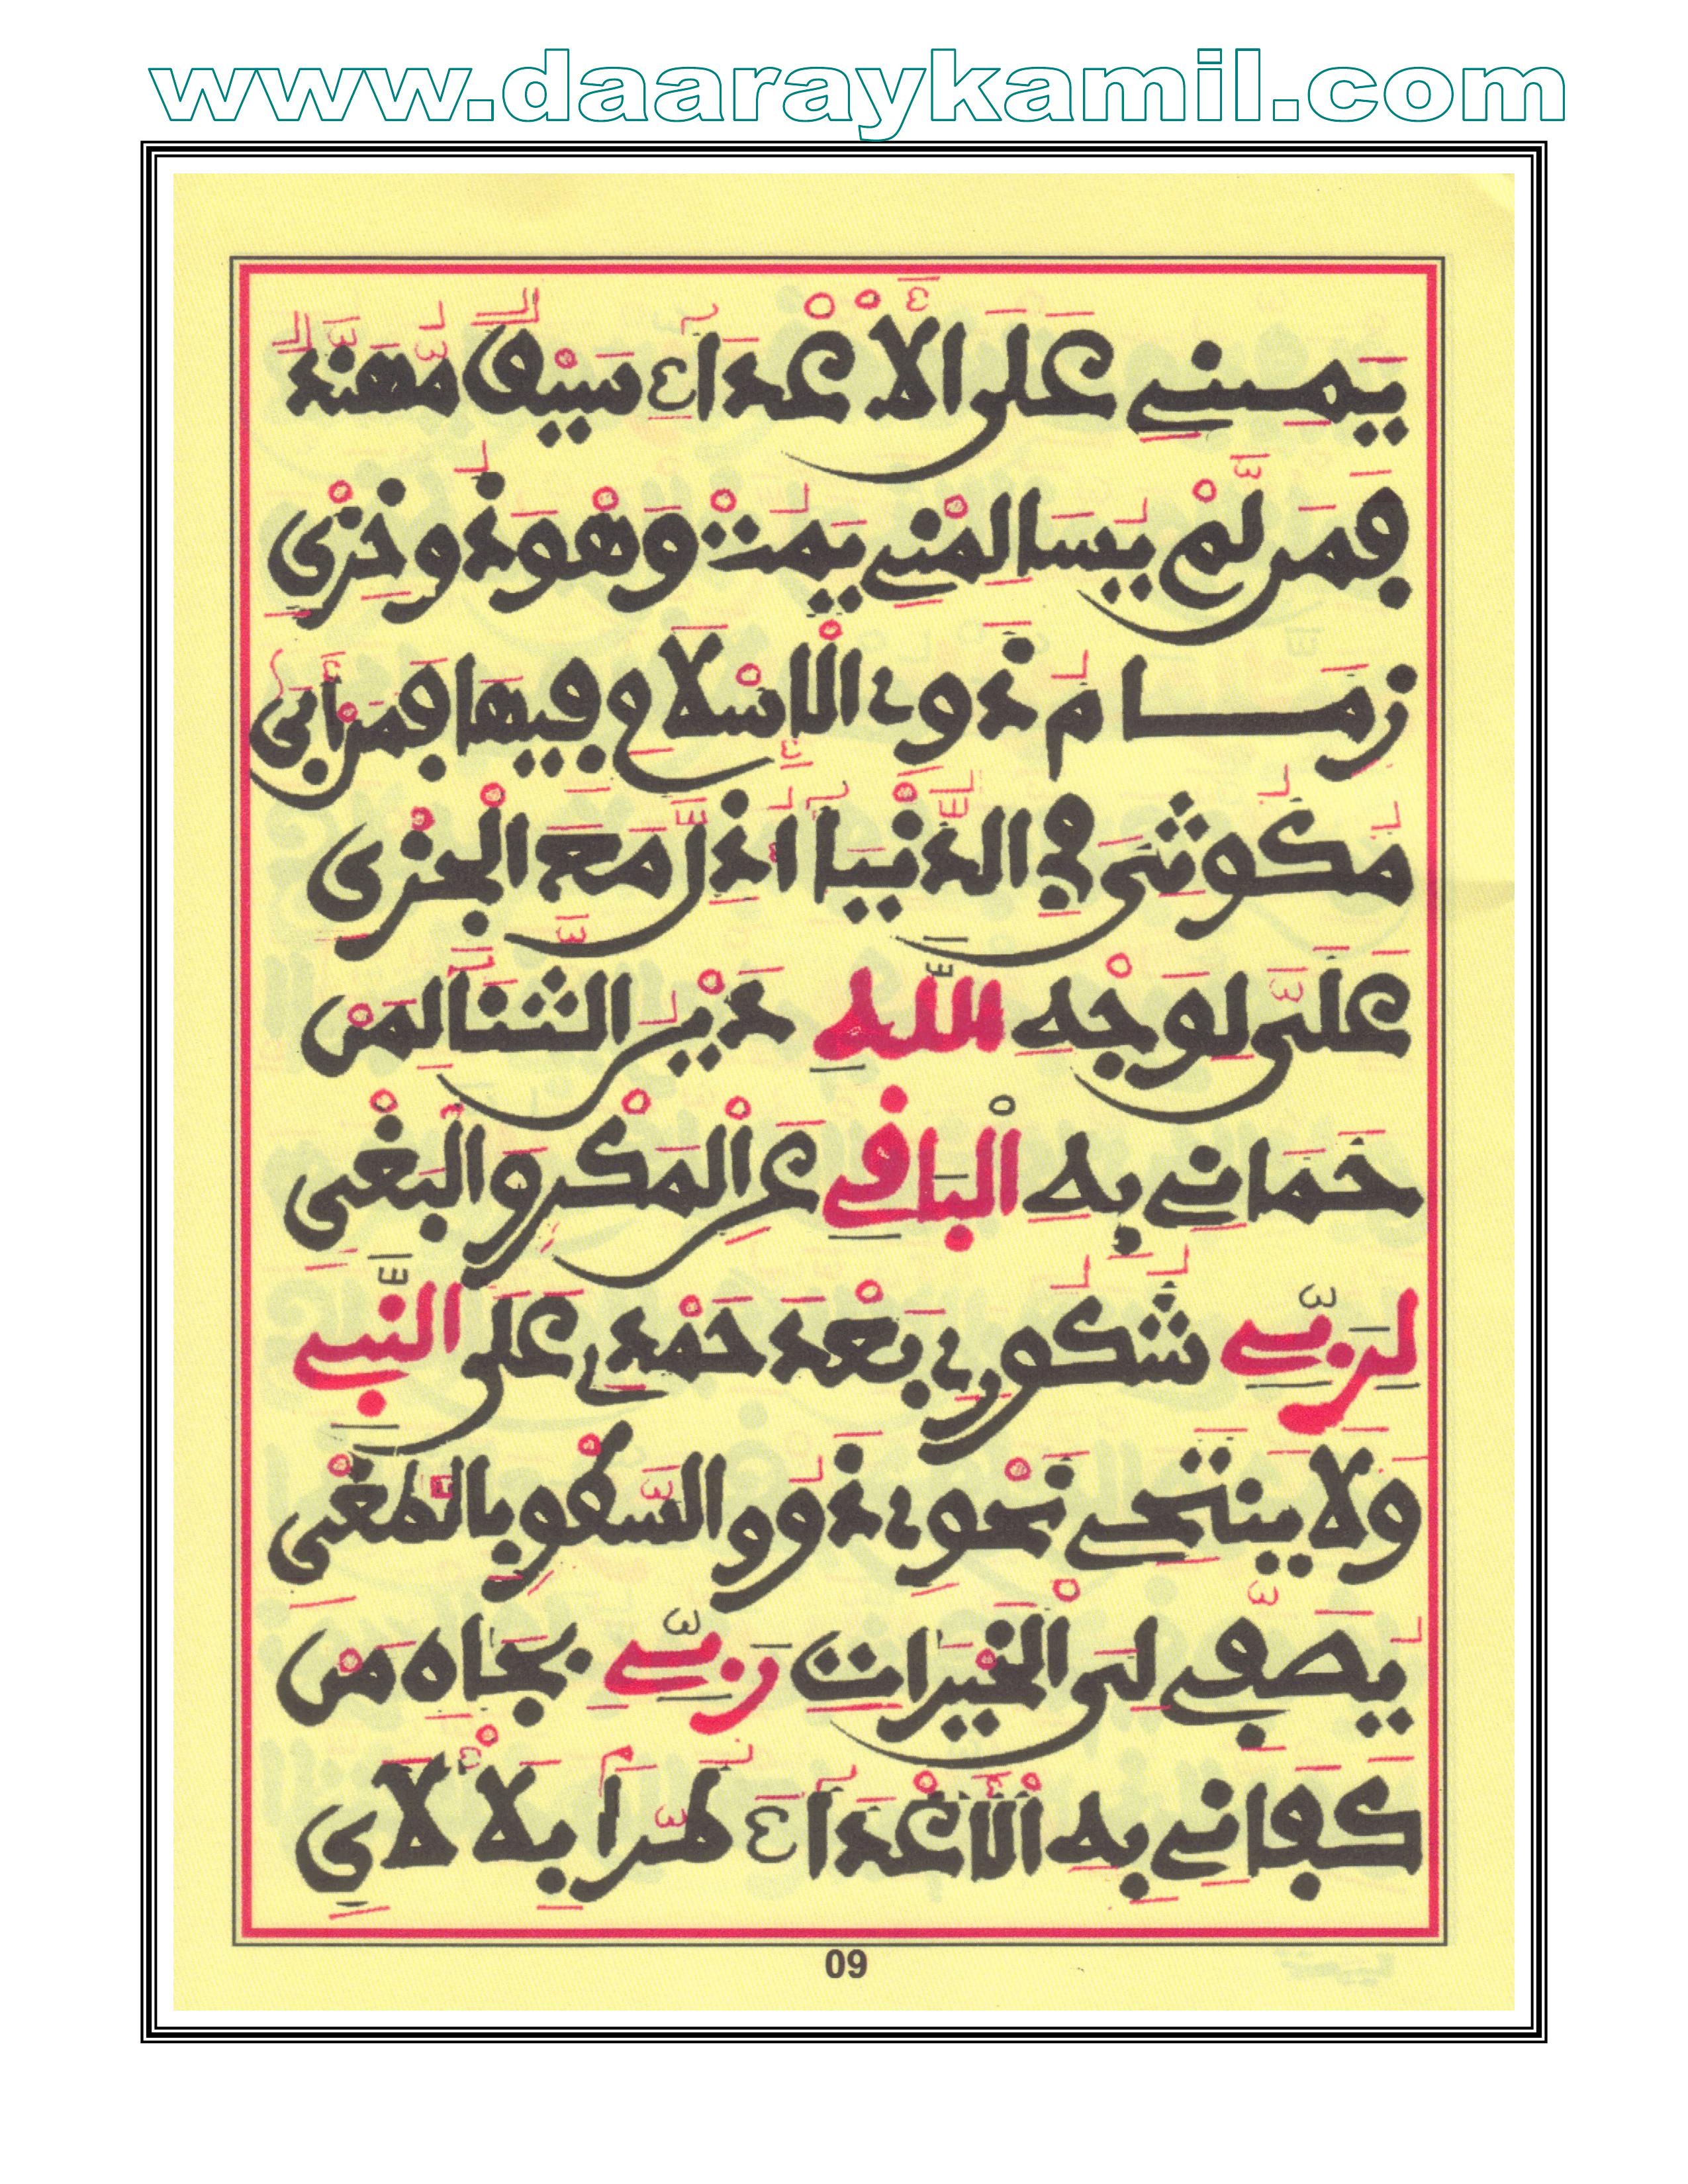 www.daaraykamil.com
يَمِينِي عَلَى الْأَعْدَآءِ سَيْفٌ مُّهَنَّدٌ
فَمَن لَّمْ يُسَالِمْنِي يَمُتْ وَهْوَ ذُو خِزْيِ
زِمَامُ ذَوِي الْإِسْلَامِ فِيهَا فَمَنْ أَبَى
مُكُوثِيَ فِي الدُّنْيَآ أُذِلَّ مَعَ الْجِزْيِ
عَلَيَّ لِوَجْهِ اللَّهِ دَيْنُ الثَّنَا لِمَنْ
حَمَانِي بِهِ الْبَاقِي عَنِ الْمَكْرِ وَالْبَغْيِ
لِرَبِّي شُكُورِي بَعْدَ حَمْدِي عَلَى النَّبِي
وَلَا يَنْتَحِي نَحْوِي ذَوُو السَّكْفِ بِالطَّغْيِ
يُصَفِّي لِيَ الْخَيْرَاتِ رَبِّي بِجَاهِ مَنْ
كَفَانِي بِهِ الْأَعْدَآءَ طُرًّا بِلَا لَأْيِ
09